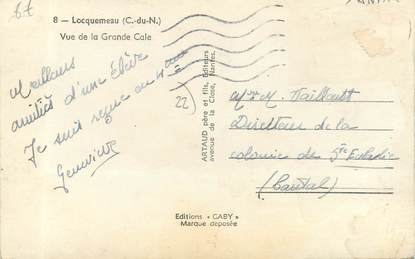 8 - Locquemeau (C.-du-N.)
Vue de la Grande Cale
Meilleurs
amitiés d'une Élève
Je suis reçue au
Geneviève
22
ARTAUD père et fils, Éditeurs
avenue de la Close, Nantes.
Mr et M Taillault
Directeur de la
colonie de Ste Eulalie
(Cantal)
Editions "GABY"
Marque déposée